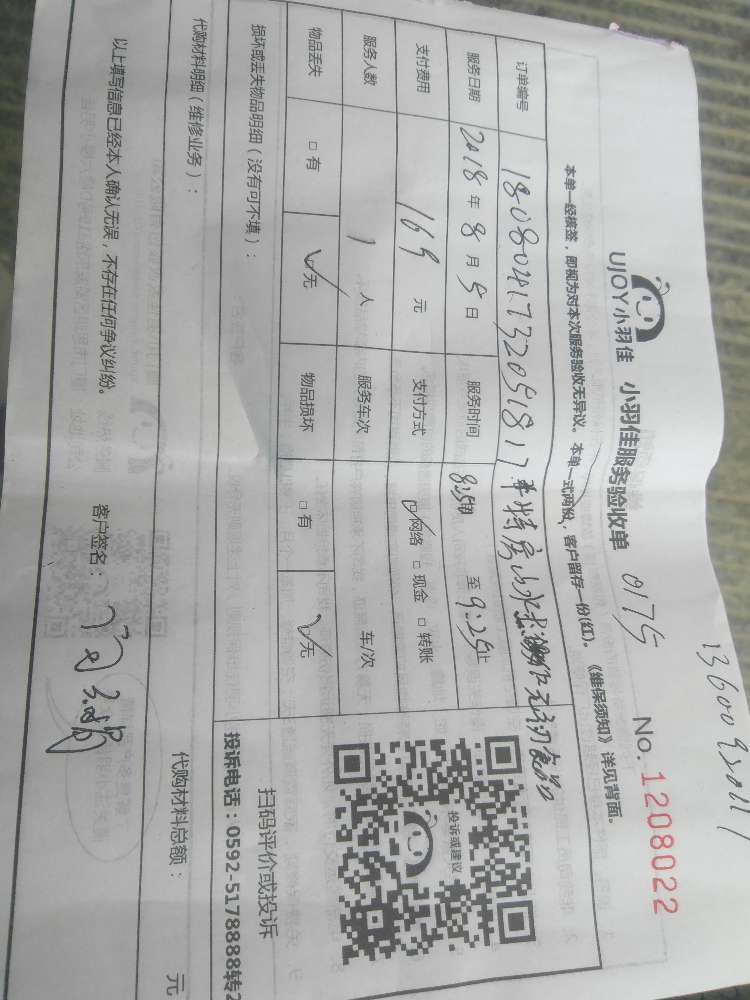 1360093011
UJOY小羽佳 小羽佳服务验收单 0175 No.1208022
本单一经核签,即视为对本次服务验收无异议。本单一式两份,客户留存一份(红)。《维保须知》详见背面。
订单编号 1808041732091817
服务日期 2018年8月5日 服务时间 至9:25止
支付费用 169元 支付方式 ☑网络 □现金 □转账
服务人数 1人 服务车次 车/次
物品丢失 □有 ☑无 物品损坏 □有 ☑无
损坏或丢失物品明细(没有可不填):
投诉或建议
扫码评价或投诉
投诉电话:0592-5178888转2
代购材料明细(维修业务): 代购材料总额: 元
以上填写信息已经本人确认无误,不存在任何争议纠纷。 客户签名: